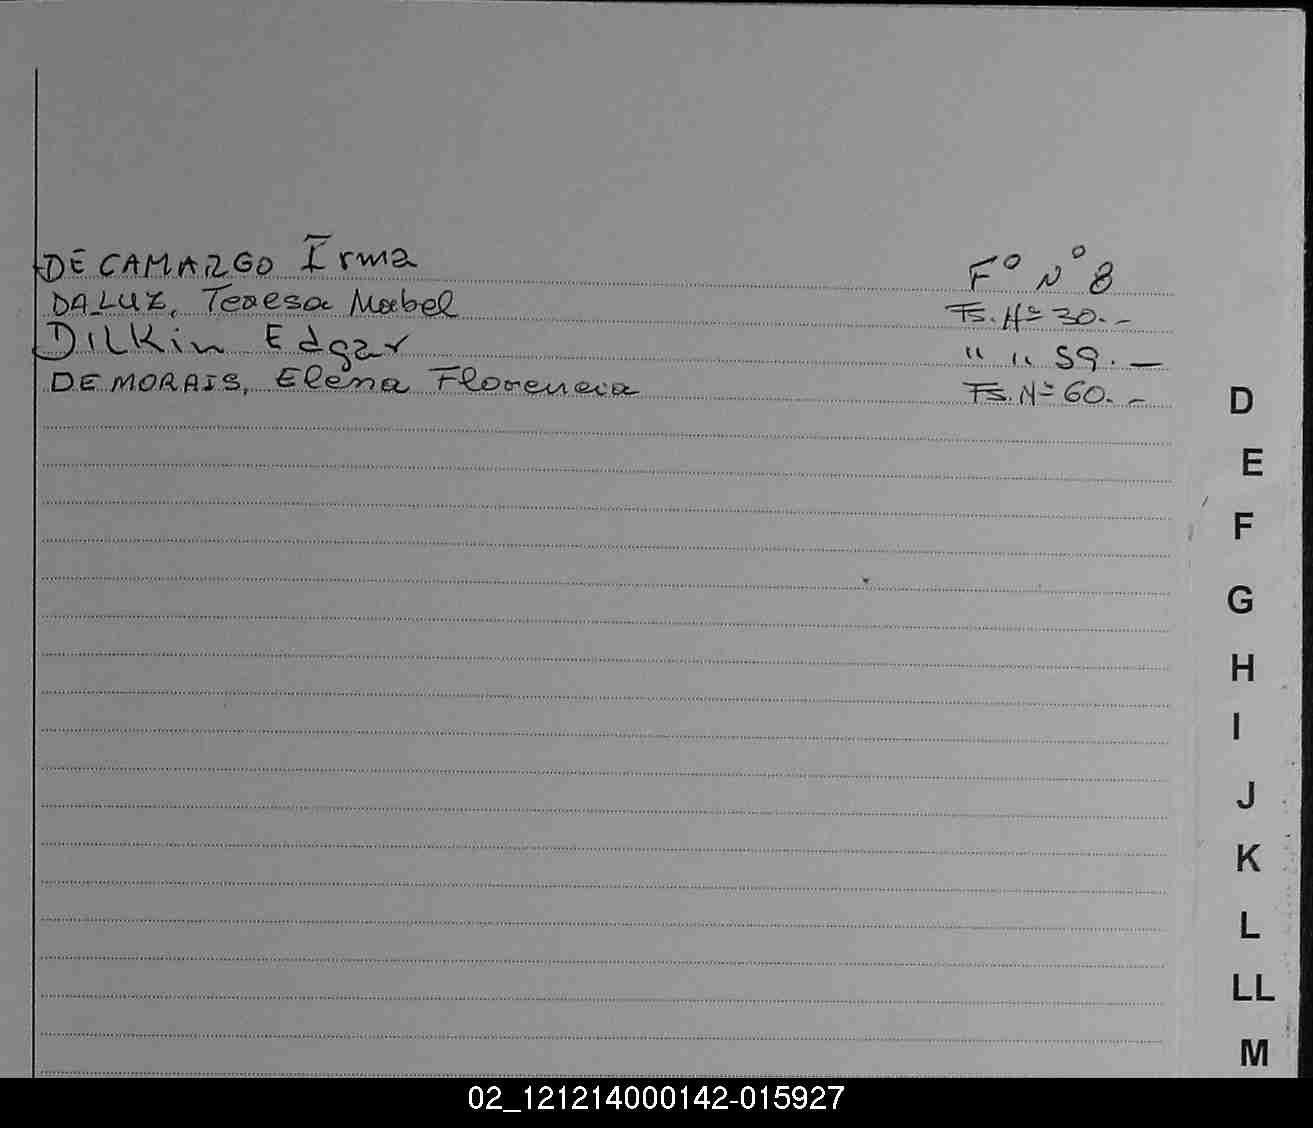 DE CAMARGO Irma F° N° 8
DA LUZ, Teresa Mabel Fs. Nº 30.-
Dilkin Edgar " " 59.-
DE MORAIS, Elena Florencia Fs. Nº 60.-
D
E
F
G
H
I
J
K
L
LL
M
02_121214000142-015927